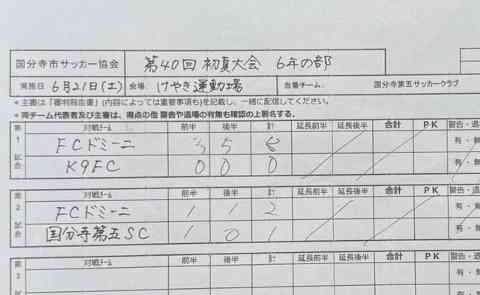 国分寺市サッカー協会 第40回 初夏大会 6年の部
実施日 6月21日(土) 会場 けやき運動場 当番チーム 国分寺第五サッカークラブ
*主審は「審判報告書」(内容によっては重要事項も)を記載し、一緒に配信してください。
*両チーム代表者及び主審は、得点の他 警告や退場の有無も確認の上署名する。
第1試合 対戦チーム 前半 後半 計 延長前半 延長後半 合計 PK 警告・退
FCドミーニ 3 5 8 有・無
K9FC 0 0 0
第2試合 対戦チーム 前半 後半 計 延長前半 延長後半 合計 PK 警告・退
FCドミーニ 1 1 2 有・無
国分寺第五SC 1 0 1
対戦チーム 前半 後半 計 延長前半 延長後半 合計 PK 警告・退